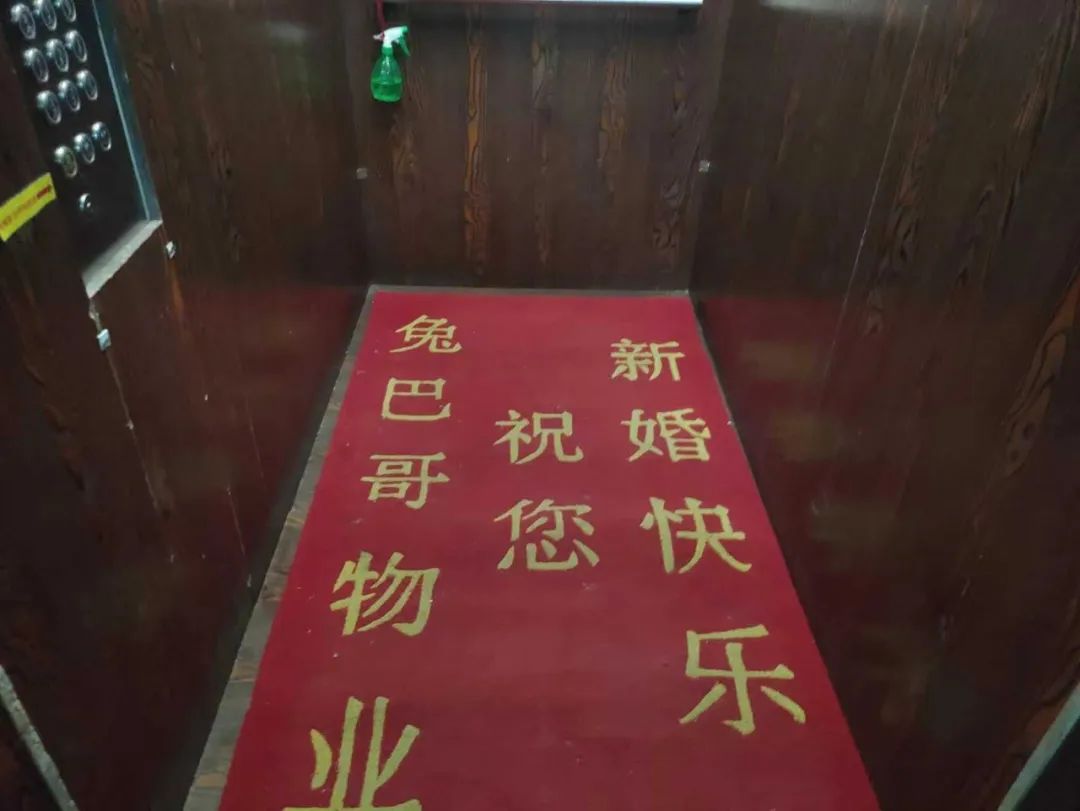 兔巴哥物业
祝您
新婚快乐